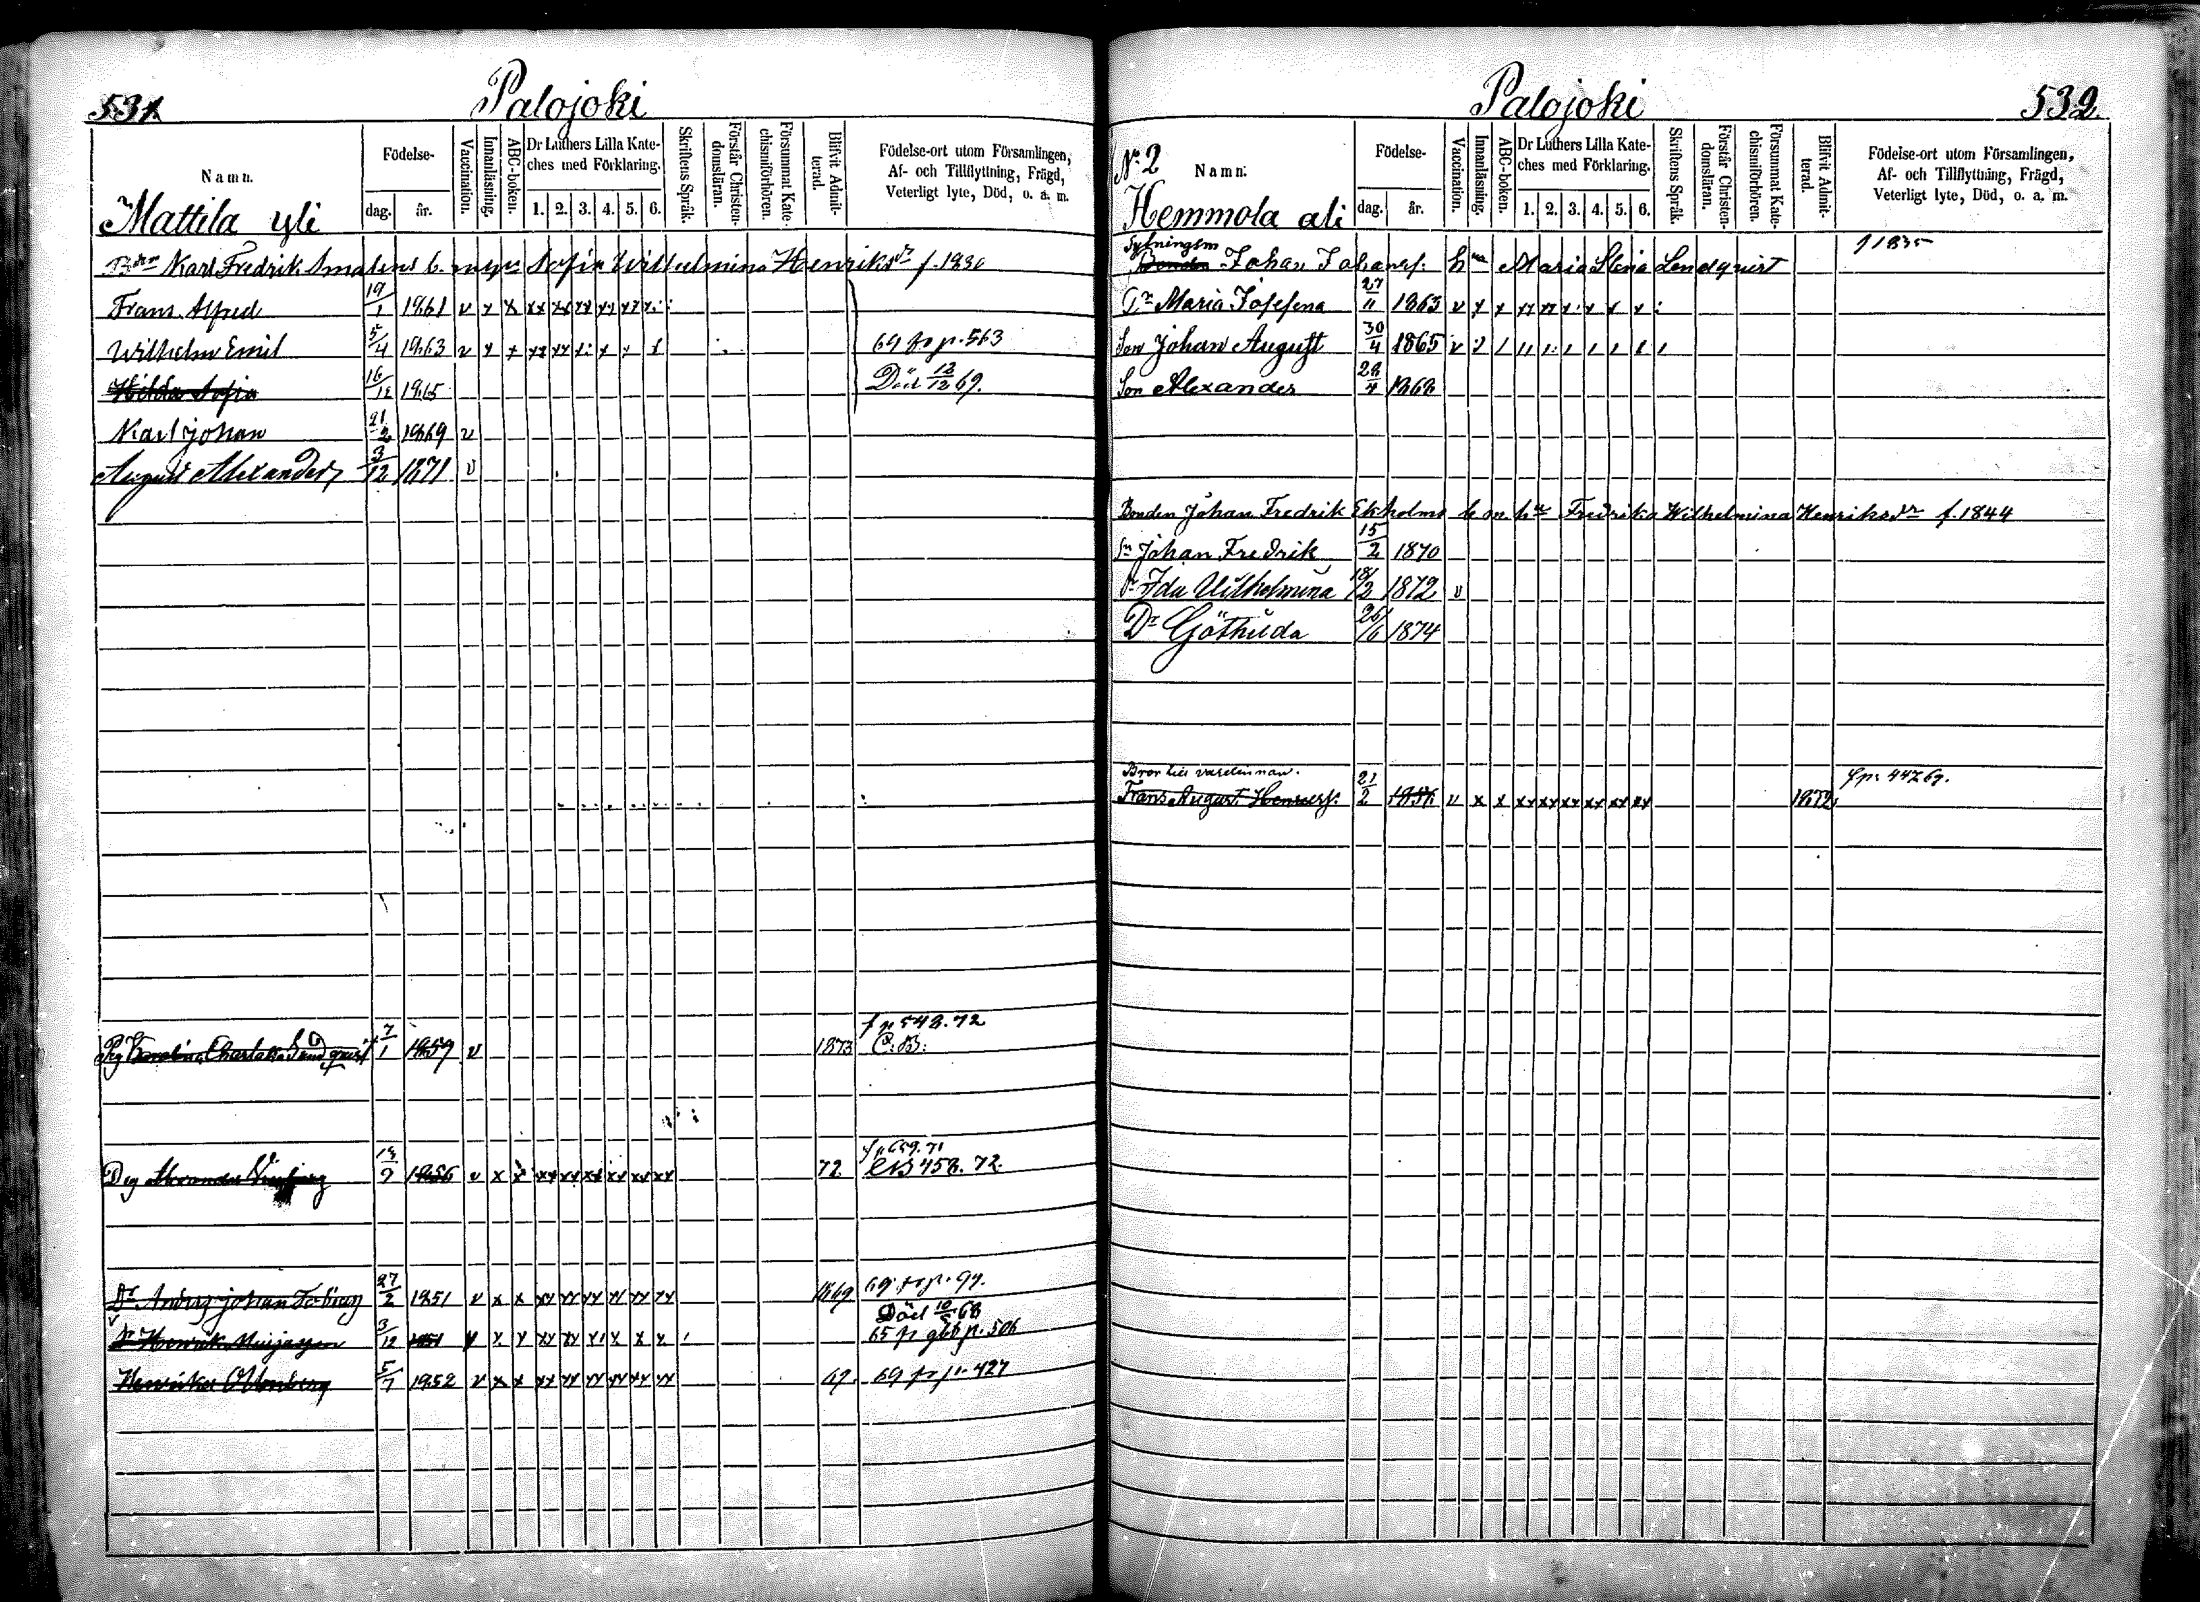 531
Palojoki
Namn.
Födelse-
dag. år.
Vaccination.
Innanläsning.
ABC-boken.
Dr Luthers Lilla Kate-
ches med Förklaring.
1. 2. 3. 4. 5. 6.
Skriftens Språk.
Förstår Christen-
domsläran.
Försummat Kate-
chismiförhören.
Blifvit Admit-
terad.
Födelse-ort utom Församlingen,
Af- och Tillflyttning, Frägd,
Veterligt lyte, Död, o. a. m.
Mattila yli
Karl Fredrik Sofia Wilhelmina Henriksdr f. 1830
Frans Alfred 19/1 1861 v x x xx xx xx xx xx
Wilhelm Emil 5/4 1863 v x x xx xx 69 fr p. 563
Hilda Sofia 16/12 1865 Död 12/12 69.
Karl Johan 21/2 1869 v
August Alexander 3/12 1871 v
f p 548. 72
Carolina Charlotta 7/1 1859 v 1873
f p 659. 71
Alexander 1856 v x x xx xx xx xx xx xx 72 458. 72
Johan 27/2 1851 v x x xx xx xx xx xx xx 1869 69 fr p. 94.
Död 10/5 68
Henrik 3/12 1851 65 fr p. 506
Henrika 5/7 1852 v x x xx xx xx xx xx xx 67. 69 fr p. 427
Palojoki
532.
No 2
Namn.
Födelse-
dag. år.
Vaccination.
Innanläsning.
ABC-boken.
Dr Luthers Lilla Kate-
ches med Förklaring.
1. 2. 3. 4. 5. 6.
Skriftens Språk.
Förstår Christen-
domsläran.
Försummat Kate-
chismiförhören.
Blifvit Admit-
terad.
Födelse-ort utom Församlingen,
Af- och Tillflyttning, Frägd,
Veterligt lyte, Död, o. a. m.
Hemmola ali
Sytningsm
Bonden Johan Johansf. hu Maria Lena Lendqvist f 1835
Dr Maria Josefena 27/11 1863 v x x xx xx
Son Johan August 30/4 1865 v
Son Alexander 28/4 1868
Bonden Johan Fredrik Ekholms hu Fredrika Wilhelmina Henriksdr f. 1844
Sn Johan Fredrik 15/2 1870
Dr Ida Vilhelmina 18/2 1872 v
Dr Göthilda 26/6 1874
Bror till värdinnan.
Frans August 21/2 v x x xx xx xx xx xx xx 1872 f p. 447 69.